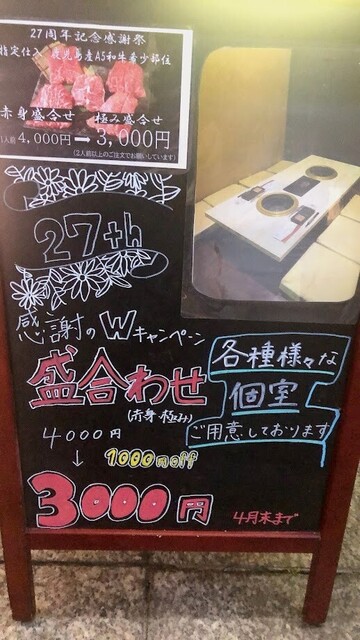 27周年記念感謝祭
指定仕入 鹿児島産A5和牛希少部位
赤身盛合せ 極み盛合せ
1人前 4,000円➡3,000円
(2人前以上のご注文でお願いしています)
27th
感謝のWキャンペーン
盛合わせ
(赤身・極み)
4000円
↓ 1000円off
3000円
4月末まで
各種様々な
個室
ご用意しております